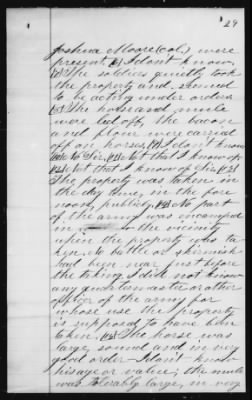 29
Joshua Moore (col.) were
present. I dont know.
The soldiers quietly took
the property and seemed
to be acting under orders
The horse and mule
were led off, the bacon
and flour were carried
off on horses. I dont know
No Sir. Not that I know of
Not that I know of Sir.
The property was taken in
the day time in the fore
noon, publicly. No part
of the army was encamped
in the vicinity
when the property was ta-
ken. No battle or skirmish
had been near just before
the taking. I did not know
any quartermaster or other
officer of the army for
whose use the property
is supposed to have been
taken. The horse was
large, sound and in very
good order - I dont know
his age or value; the mule
was tolerably large, in very